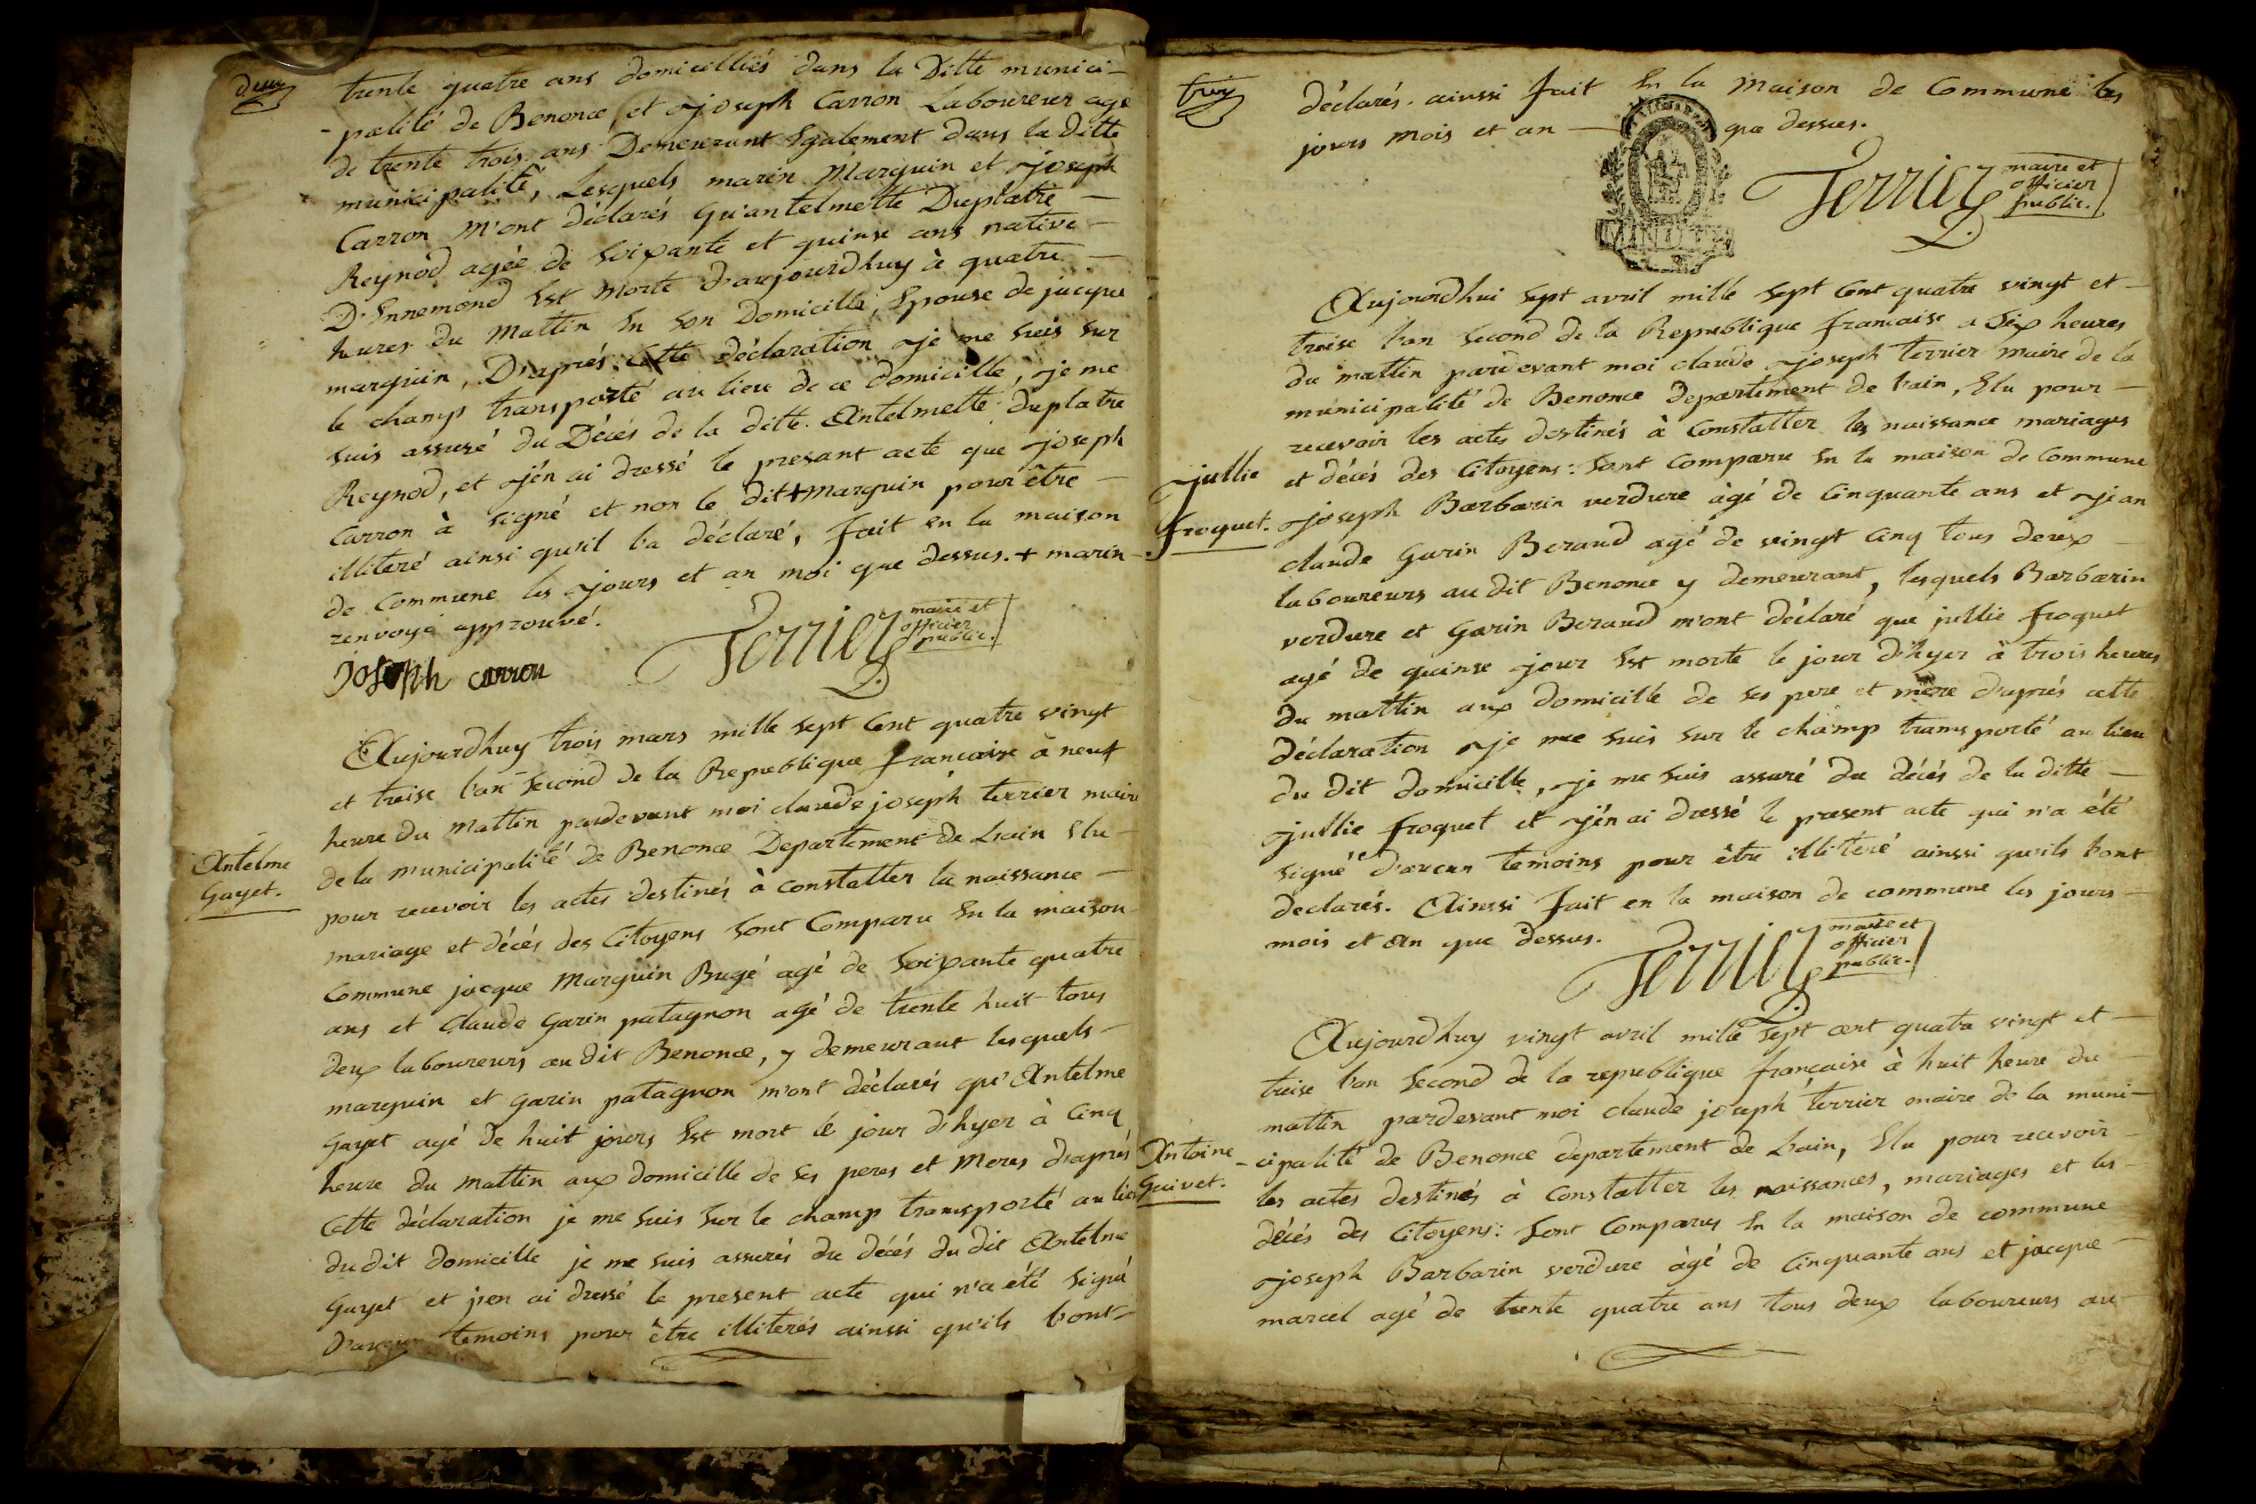 deux
trente quatre ans domicilliés dans la Ditte munici-
-palité de Benonce, et joseph Carron Laboureur agé
de trente trois ans Demeurant Egalement dans la ditte
municipalité, Lesquels marin Marguin et joseph
Carron m'ont déclarés qu'antelmette Duplatre
Reynod agée de soixante et quinse ans native
D'Innemond Est Morte d'aujourdhuy à quatre
heures du Mattin En son Domicille, Epouse de jacque
marguin, D'aprés Cette déclaration je me suis sur
le champ transporté au lieu de ce domicille, je me
suis assuré du Décés de la ditte Antelmette duplatre
Reynod, et j'en ai dressé le presant acte que joseph
Carron à signé et non le dit + Marguin pour être
illiteré ainsi qu'il l'a déclaré, fait en la maison
de Commune les jours et an moi que dessus. + marin
renvoyé approuvé.
Terrier maire et
officier
public.
Joseph carron
Aujourdhuy trois mars mille sept Cent quatre vingt
et treise l'an second de la Republique francaise à neuf
heure du Mattin pardevant moi claude joseph terrier maire
de la municipalité de Benonce Departement de Lain Elu
Antelme
Gayet.
pour recevoir les actes destinés à constatter la naissance
mariage et décés des Citoyens sont Comparu En la maison
Commune jacque Marguin Bugé agé de soixante quatre
ans et Claude Garin patagnon agé de trente huit tous
deux laboureurs au dit Benonce, y demeurant lesquels
marguin et garin patagnon m'ont déclarés qu'Antelme
Gayet agé de huit jours Est mort le jour d'hyer à Cinq
heure du Mattin aux domicille de ses peres et Meres d'aprés
Cette déclaration je me suis sur le champ transporté au lieu
du dit domicille je me suis assurés du décés du dit Antelme
Gayet et j'en ai dressé le present acte qui n'a été signé
d'aucun temoins pour être illiterés ainssi qu'ils l'ont
trois
déclarés. ainssi fait En la Maison de Commune les
jours mois et an que dessus.
MINUTE
Terrier maire et
officier
public.
Aujourdhui sept avril mille sept Cent quatre vingt et
treise l'an second de la Republique francaise a six heures
du mattin pardevant moi claude joseph terrier maire de la
municipalité de Benonce departement de l'ain, Elu pour
recevoir les actes destinés à Constatter les naissance mariages
jullie
froquet.
et décés des Citoyens: sont Comparu En la maison de Commune
joseph Barbarin verdure àgé de Cinquante ans et jean
claude Garin Beraud agé de vingt Cinq tous deux
laboureurs au dit Benonce y demeurant, lesquels Barbarin
verdure et Garin Beraud m'ont déclaré que jullie froquet
agé de quinse jour Est morte le jour d'hyer à trois heures
du mattin aux domicille de ses pere et mere d'aprés cette
déclaration je me suis sur le champ transporté au lieu
du dit domicille, je me suis assuré du décés de la ditte
jullie froquet et j'en ai dressé le present acte qui n'a été
signé d'aucun temoins pour être illiteré ainssi qu'ils l'ont
declarés. Ainssi fait en la maison de commune les jours
mois et an que dessus.
Terrier maire et
officier
public.
Aujourdhuy vingt avril mille sept cent quatre vingt et
treise l'an second de la republique française à huit heure du
mattin pardevant moi claude joseph terrier maire de la muni-
Antoine
Guivet.
-cipalité de Benonce departement de Lain, Elu pour recevoir
les actes destinés à Constatter les naissances, mariages et les
décés des Citoyens: sont Comparus En la maison de commune
joseph Barbarin verdure àgé de Cinquante ans et jacque
marcel agé de trente quatre ans tous deux laboureurs au